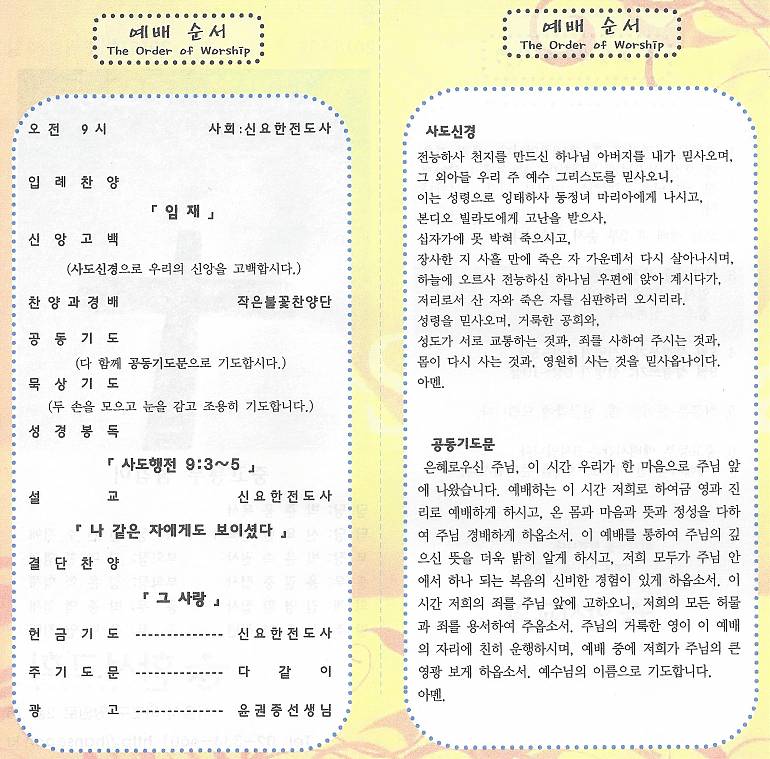 예배 순서
The Order of Worship
오 전 9시 사회:신요한전도사
입 례 찬 양
「 임 재 」
신 앙 고 백
(사도신경으로 우리의 신앙을 고백합시다.)
찬 양 과 경 배 작은불꽃찬양단
공 동 기 도
(다 함께 공동기도문으로 기도합시다.)
묵 상 기 도
(두 손을 모으고 눈을 감고 조용히 기도합니다.)
성 경 봉 독
「 사도행전 9:3~5 」
설 교 신요한전도사
「 나 같은 자에게도 보이셨다 」
결 단 찬 양
「 그 사랑 」
헌 금 기 도 -------------- 신요한전도사
주 기 도 문 -------------- 다 같 이
광 고 -------------- 윤권중선생님
예배 순서
The Order of Worship
사도신경
전능하사 천지를 만드신 하나님 아버지를 내가 믿사오며,
그 외아들 우리 주 예수 그리스도를 믿사오니,
이는 성령으로 잉태하사 동정녀 마리아에게 나시고,
본디오 빌라도에게 고난을 받으사,
십자가에 못 박혀 죽으시고,
장사한 지 사흘 만에 죽은 자 가운데서 다시 살아나시며,
하늘에 오르사 전능하신 하나님 우편에 앉아 계시다가,
저리로서 산 자와 죽은 자를 심판하러 오시리라.
성령을 믿사오며, 거룩한 공회와,
성도가 서로 교통하는 것과, 죄를 사하여 주시는 것과,
몸이 다시 사는 것과, 영원히 사는 것을 믿사옵나이다.
아멘.
공동기도문
은혜로우신 주님, 이 시간 우리가 한 마음으로 주님 앞
에 나왔습니다. 예배하는 이 시간 저희로 하여금 영과 진
리로 예배하게 하시고, 온 몸과 마음과 뜻과 정성을 다하
여 주님 경배하게 하옵소서. 이 예배를 통하여 주님의 깊
으신 뜻을 더욱 밝히 알게 하시고, 저희 모두가 주님 안
에서 하나 되는 복음의 신비한 경험이 있게 하옵소서. 이
시간 저희의 죄를 주님 앞에 고하오니. 저희의 모든 허물
과 죄를 용서하여 주옵소서. 주님의 거룩한 영이 이 예배
의 자리에 친히 운행하시며, 예배 중에 저희가 주님의 큰
영광 보게 하옵소서. 예수님의 이름으로 기도합니다.
아멘.